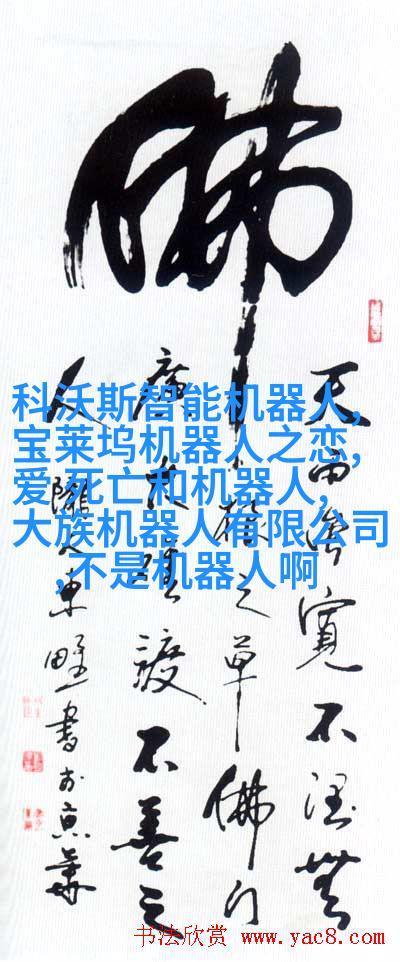 佛
天雨虽寬不润無
根之草佛门
廣大难渡不善之
人 隴人東野書於京華
科沃斯智能机器人,
宝莱坞机器人之恋,
爱,死亡和机器人,
大族机器人有限公司
,不是机器人啊
书法欣赏 www.yac8.com